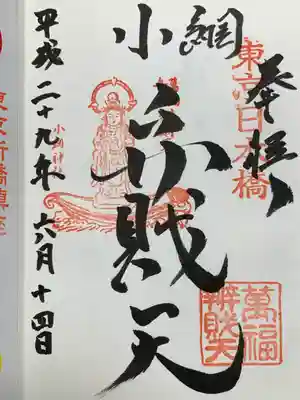 奉拝
東京日本橋
小網
弁財天
萬福
辨財天
平成二十九年六月十四日
東京新橋